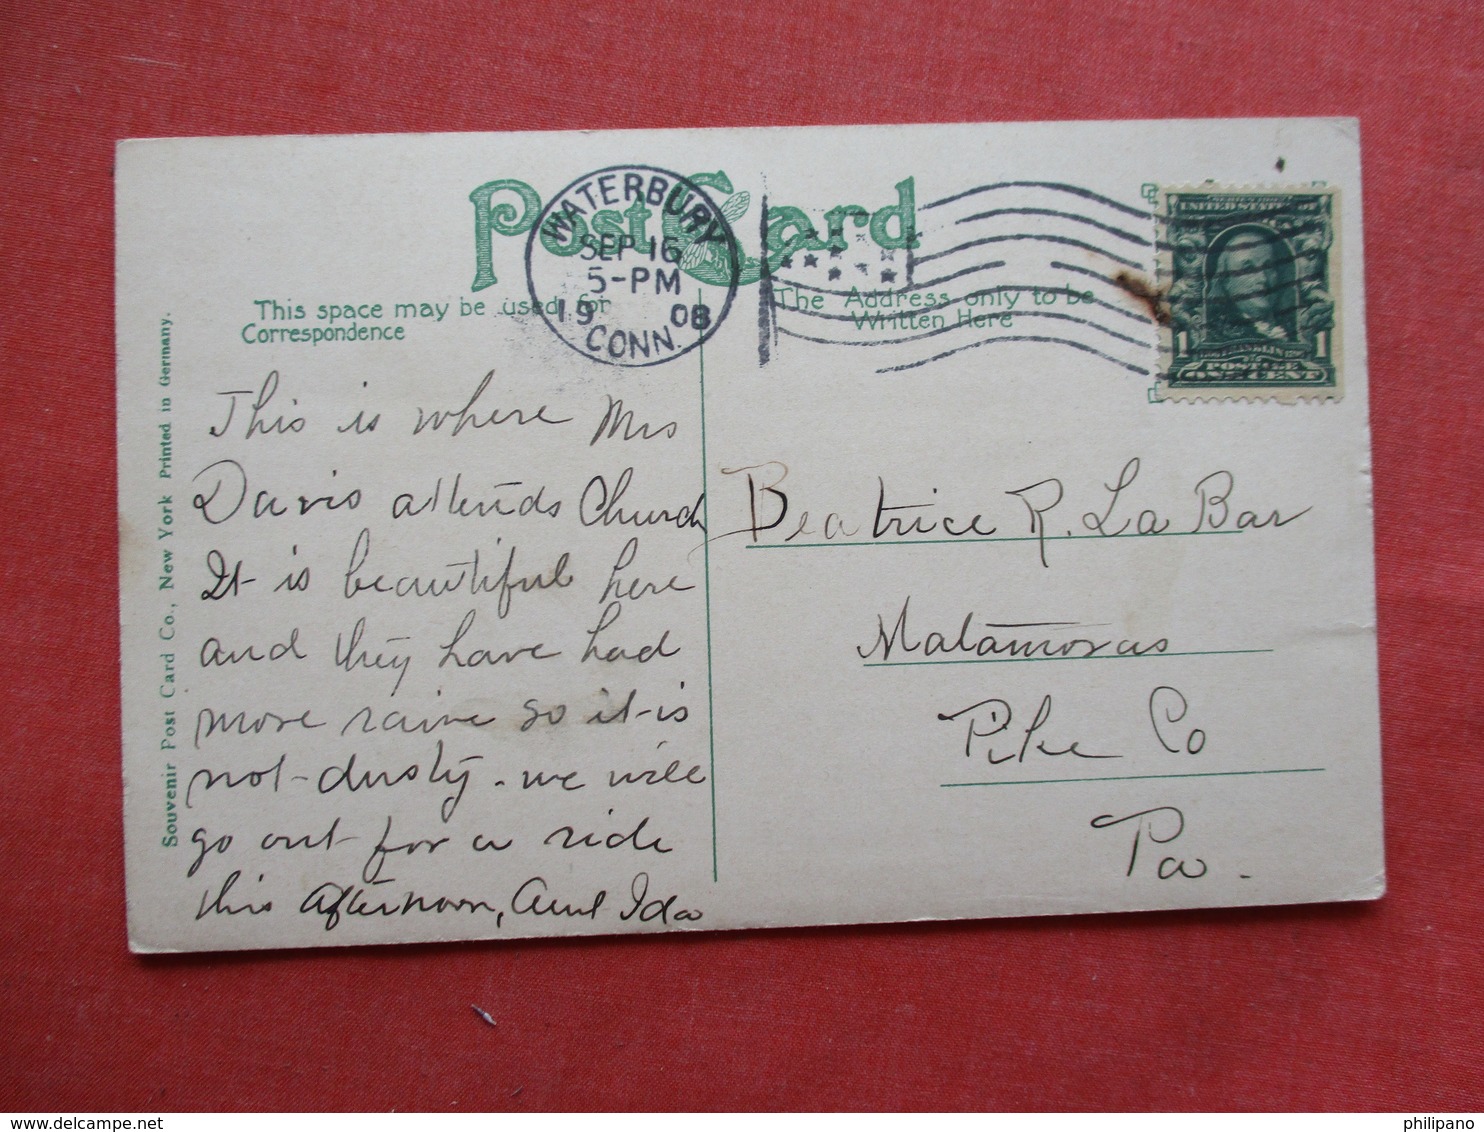 Post Card
WATERBURY
SEP 16
5-PM
1908
CONN.
This space may be used for
Correspondence
The Address only to be
Written Here
1 1
POSTAGE
ONE CENT
Souvenir Post Card Co., New York Printed in Germany.
This is where Mrs
Davis attends Church
It is beautiful here
and they have had
more raine so it is
not dusty - we will
go out for a ride
this Afternoon, Aunt Ida
Beatrice R. La Bar
Matamoras
Pike Co
Pa.
philipano